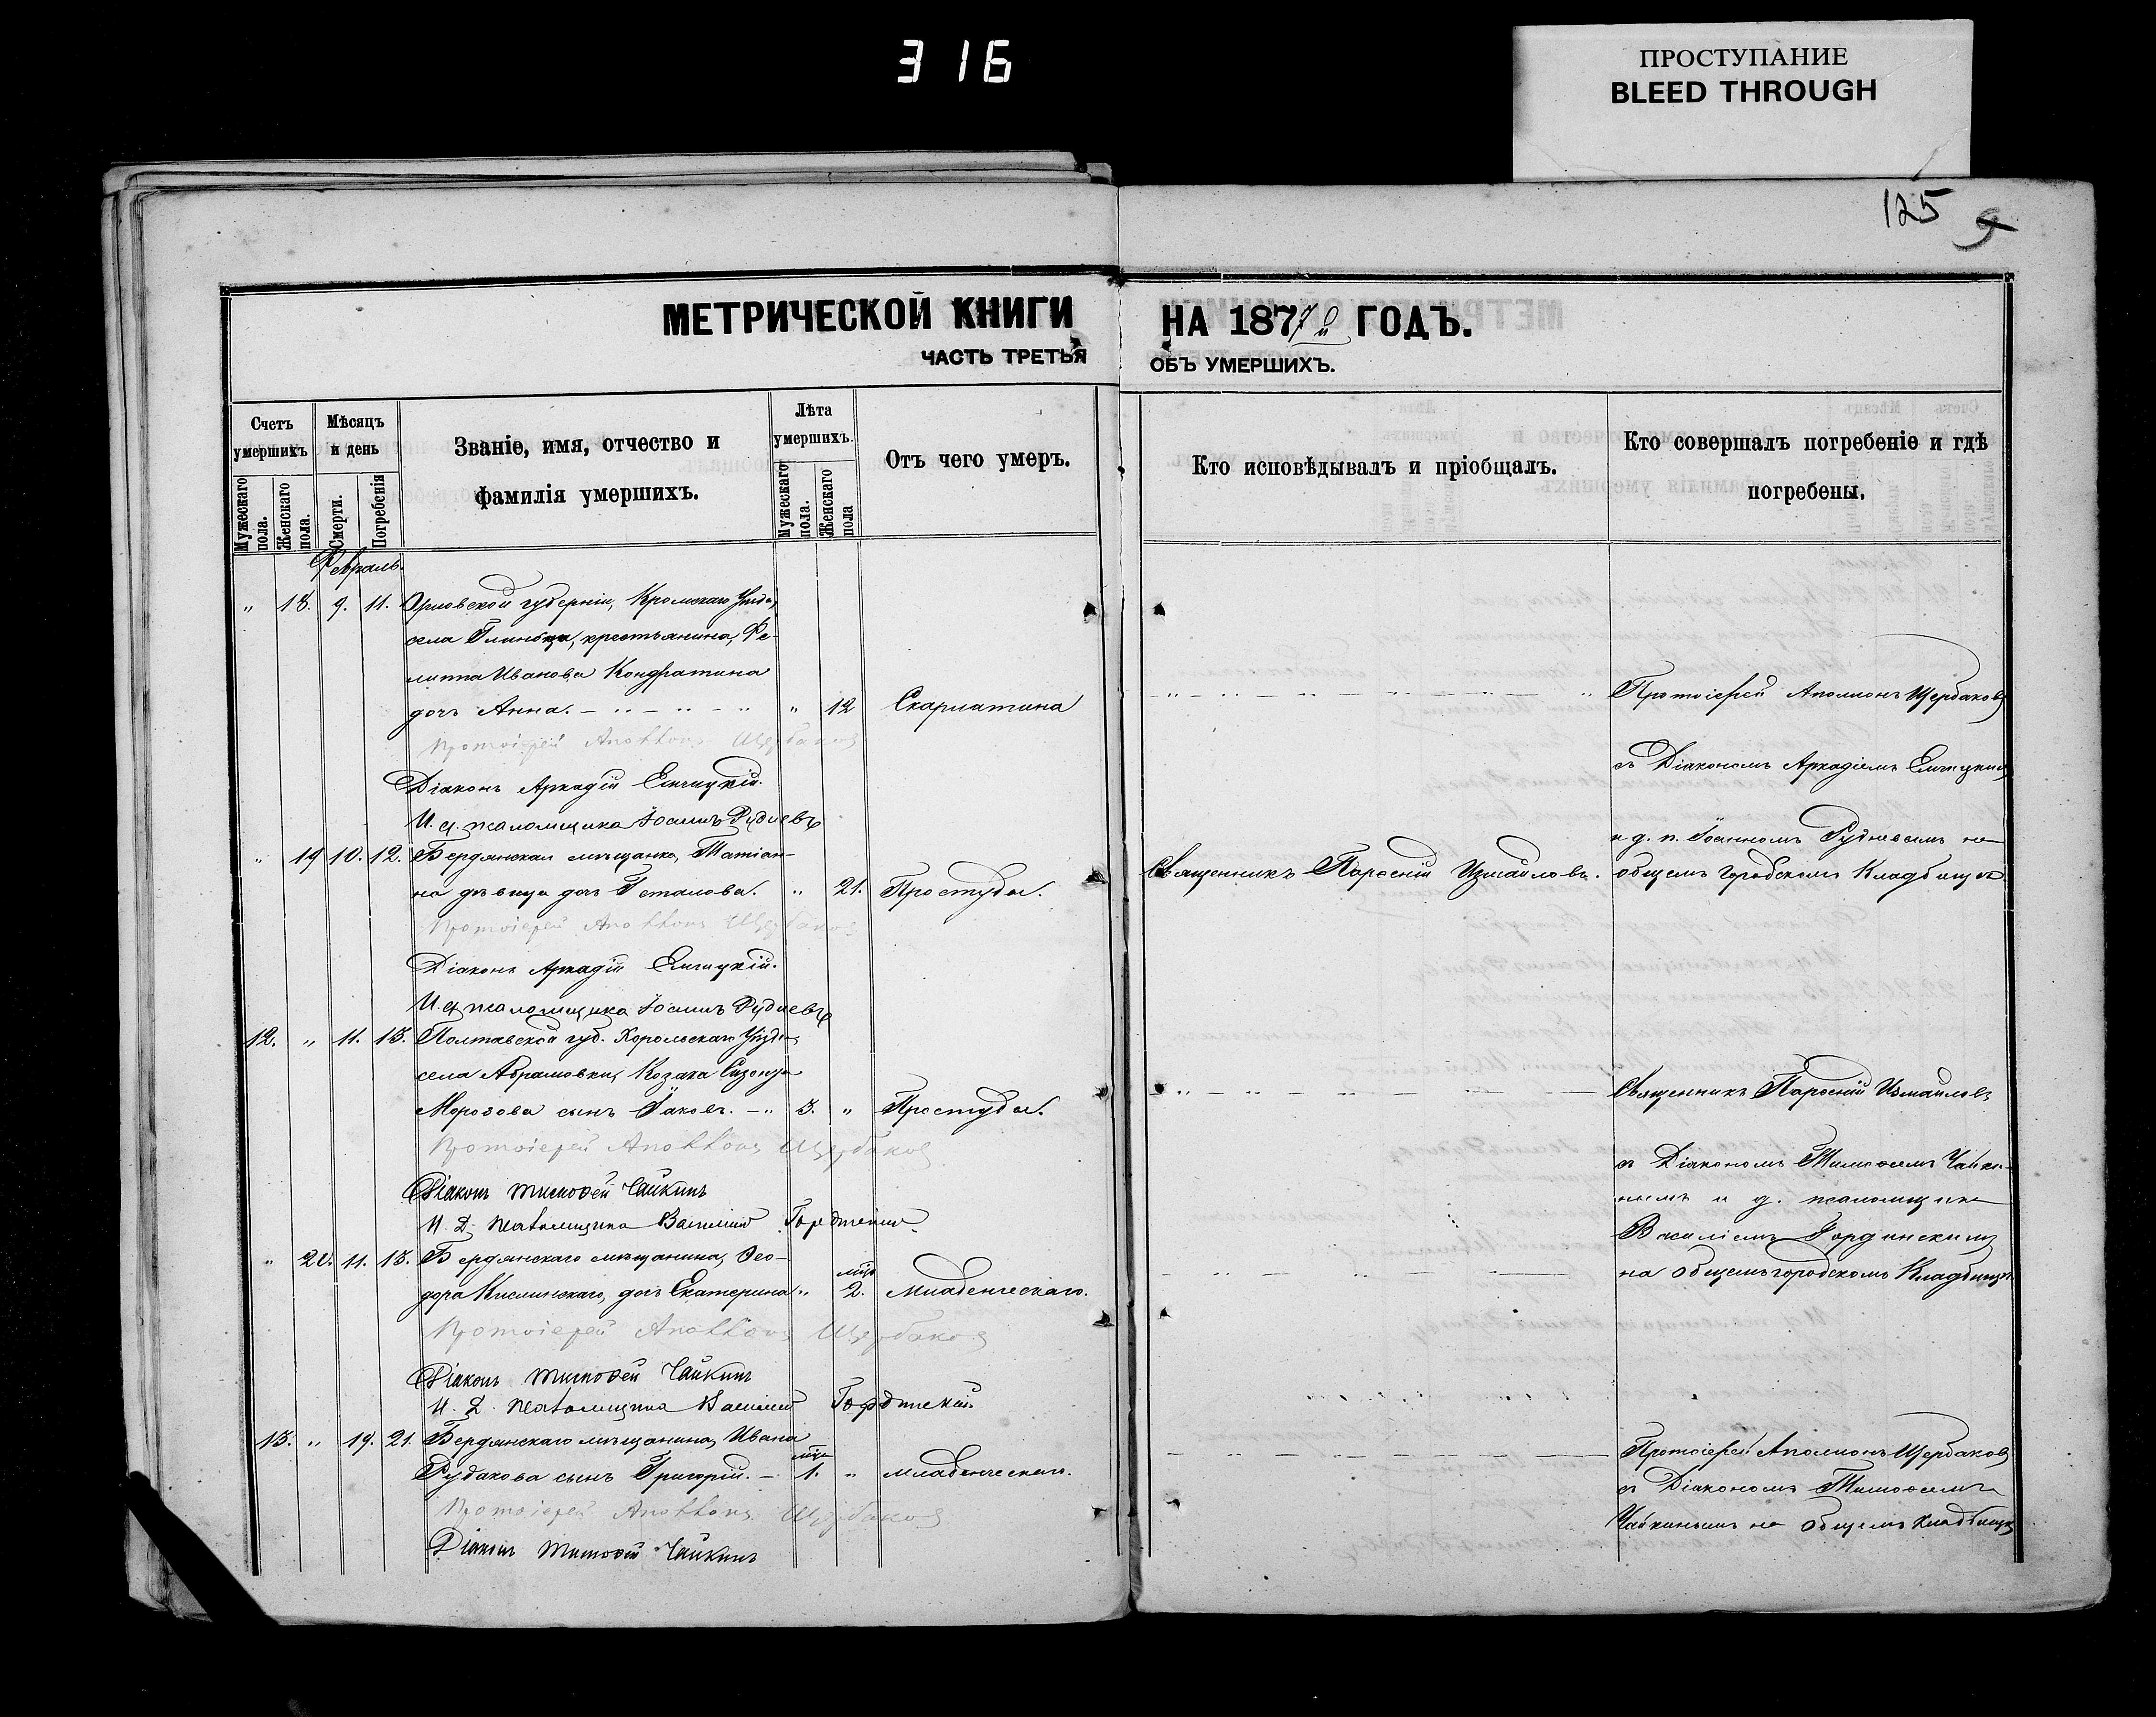 316
ПРОСТУПАНИЕ
BLEED THROUGH
125
9
МЕТРИЧЕСКОЙ КНИГИ НА 1877й ГОДЪ.
ЧАСТЬ ТРЕТЬЯ ОБЪ УМЕРШИХЪ.
Счетъ умершихъ
Мужескаго пола.
Женскаго пола.
Мѣсяцъ и день
Смерти.
Погребенія
Званіе, имя, отчество и фамилія умершихъ.
Лѣта умершихъ.
Мужескаго пола.
Женскаго пола
Отъ чего умеръ.
Кто исповѣдывалъ и пріобщалъ.
Кто совершалъ погребеніе и гдѣ погребены.
Февраль.
" 18. 9. 11. Орловской губерніи, Кромскаго Уѣзда,
села крестьянина, Фи-
липпа Иванова
дочь Анна. " 12 Скарлатина
Протоіерей Аполлонъ Щербаковъ
Протоіерей Аполлонъ Щербаковъ
Діаконъ Аркадій
съ Діакономъ Аркадіемъ
И. д. псаломщика Іоаннъ Рудневъ
и д. п. Іоанномъ Рудневымъ на
" 19 10. 12. Бердянская мѣщанка, Татіан-
на дѣвица дочь " 21. Простуды. Священникъ Парѳеній Измайловъ. общемъ городскомъ Кладбищѣ
Протоіерей Аполлонъ Щербаковъ
Діаконъ Аркадій
И. д. псаломщика Іоаннъ Рудневъ
12. " 11. 13. Полтавской губ. Хорольскаго Уѣзда
села Абрамовки, Козака
Морозова сынъ Іаковъ. 3. " Простуды. Священникъ Парѳеній Измайловъ
Протоіерей Аполлонъ Щербаковъ
съ Діакономъ Тимоѳеемъ Чайки-
Діаконъ Тимоѳей Чайкинъ
нымъ и д. псаломщика
И. Д. Псаломщика Василій Гординскій
Василіемъ Гординскимъ
" 20. 11. 13. Бердянскаго мѣщанина, Ѳео-
на общемъ городскомъ Кладбищѣ
дора дочь Екатерина " мца 2. Младенческаго.
Протоіерей Аполлонъ Щербаковъ
Діаконъ Тимоѳей Чайкинъ
И. Д. Псаломщика Василій Гординскій
13. " 19. 21. Бердянскаго мѣщанина, Ивана
Протоіерей Аполлонъ Щербаковъ
Рудакова сынъ Григорій. мца 1. " Младенческаго.
съ Діакономъ Тимоѳеемъ
Протоіерей Аполлонъ Щербаковъ
Чайкинымъ на общемъ кладбищѣ
Діаконъ Тимоѳей Чайкинъ